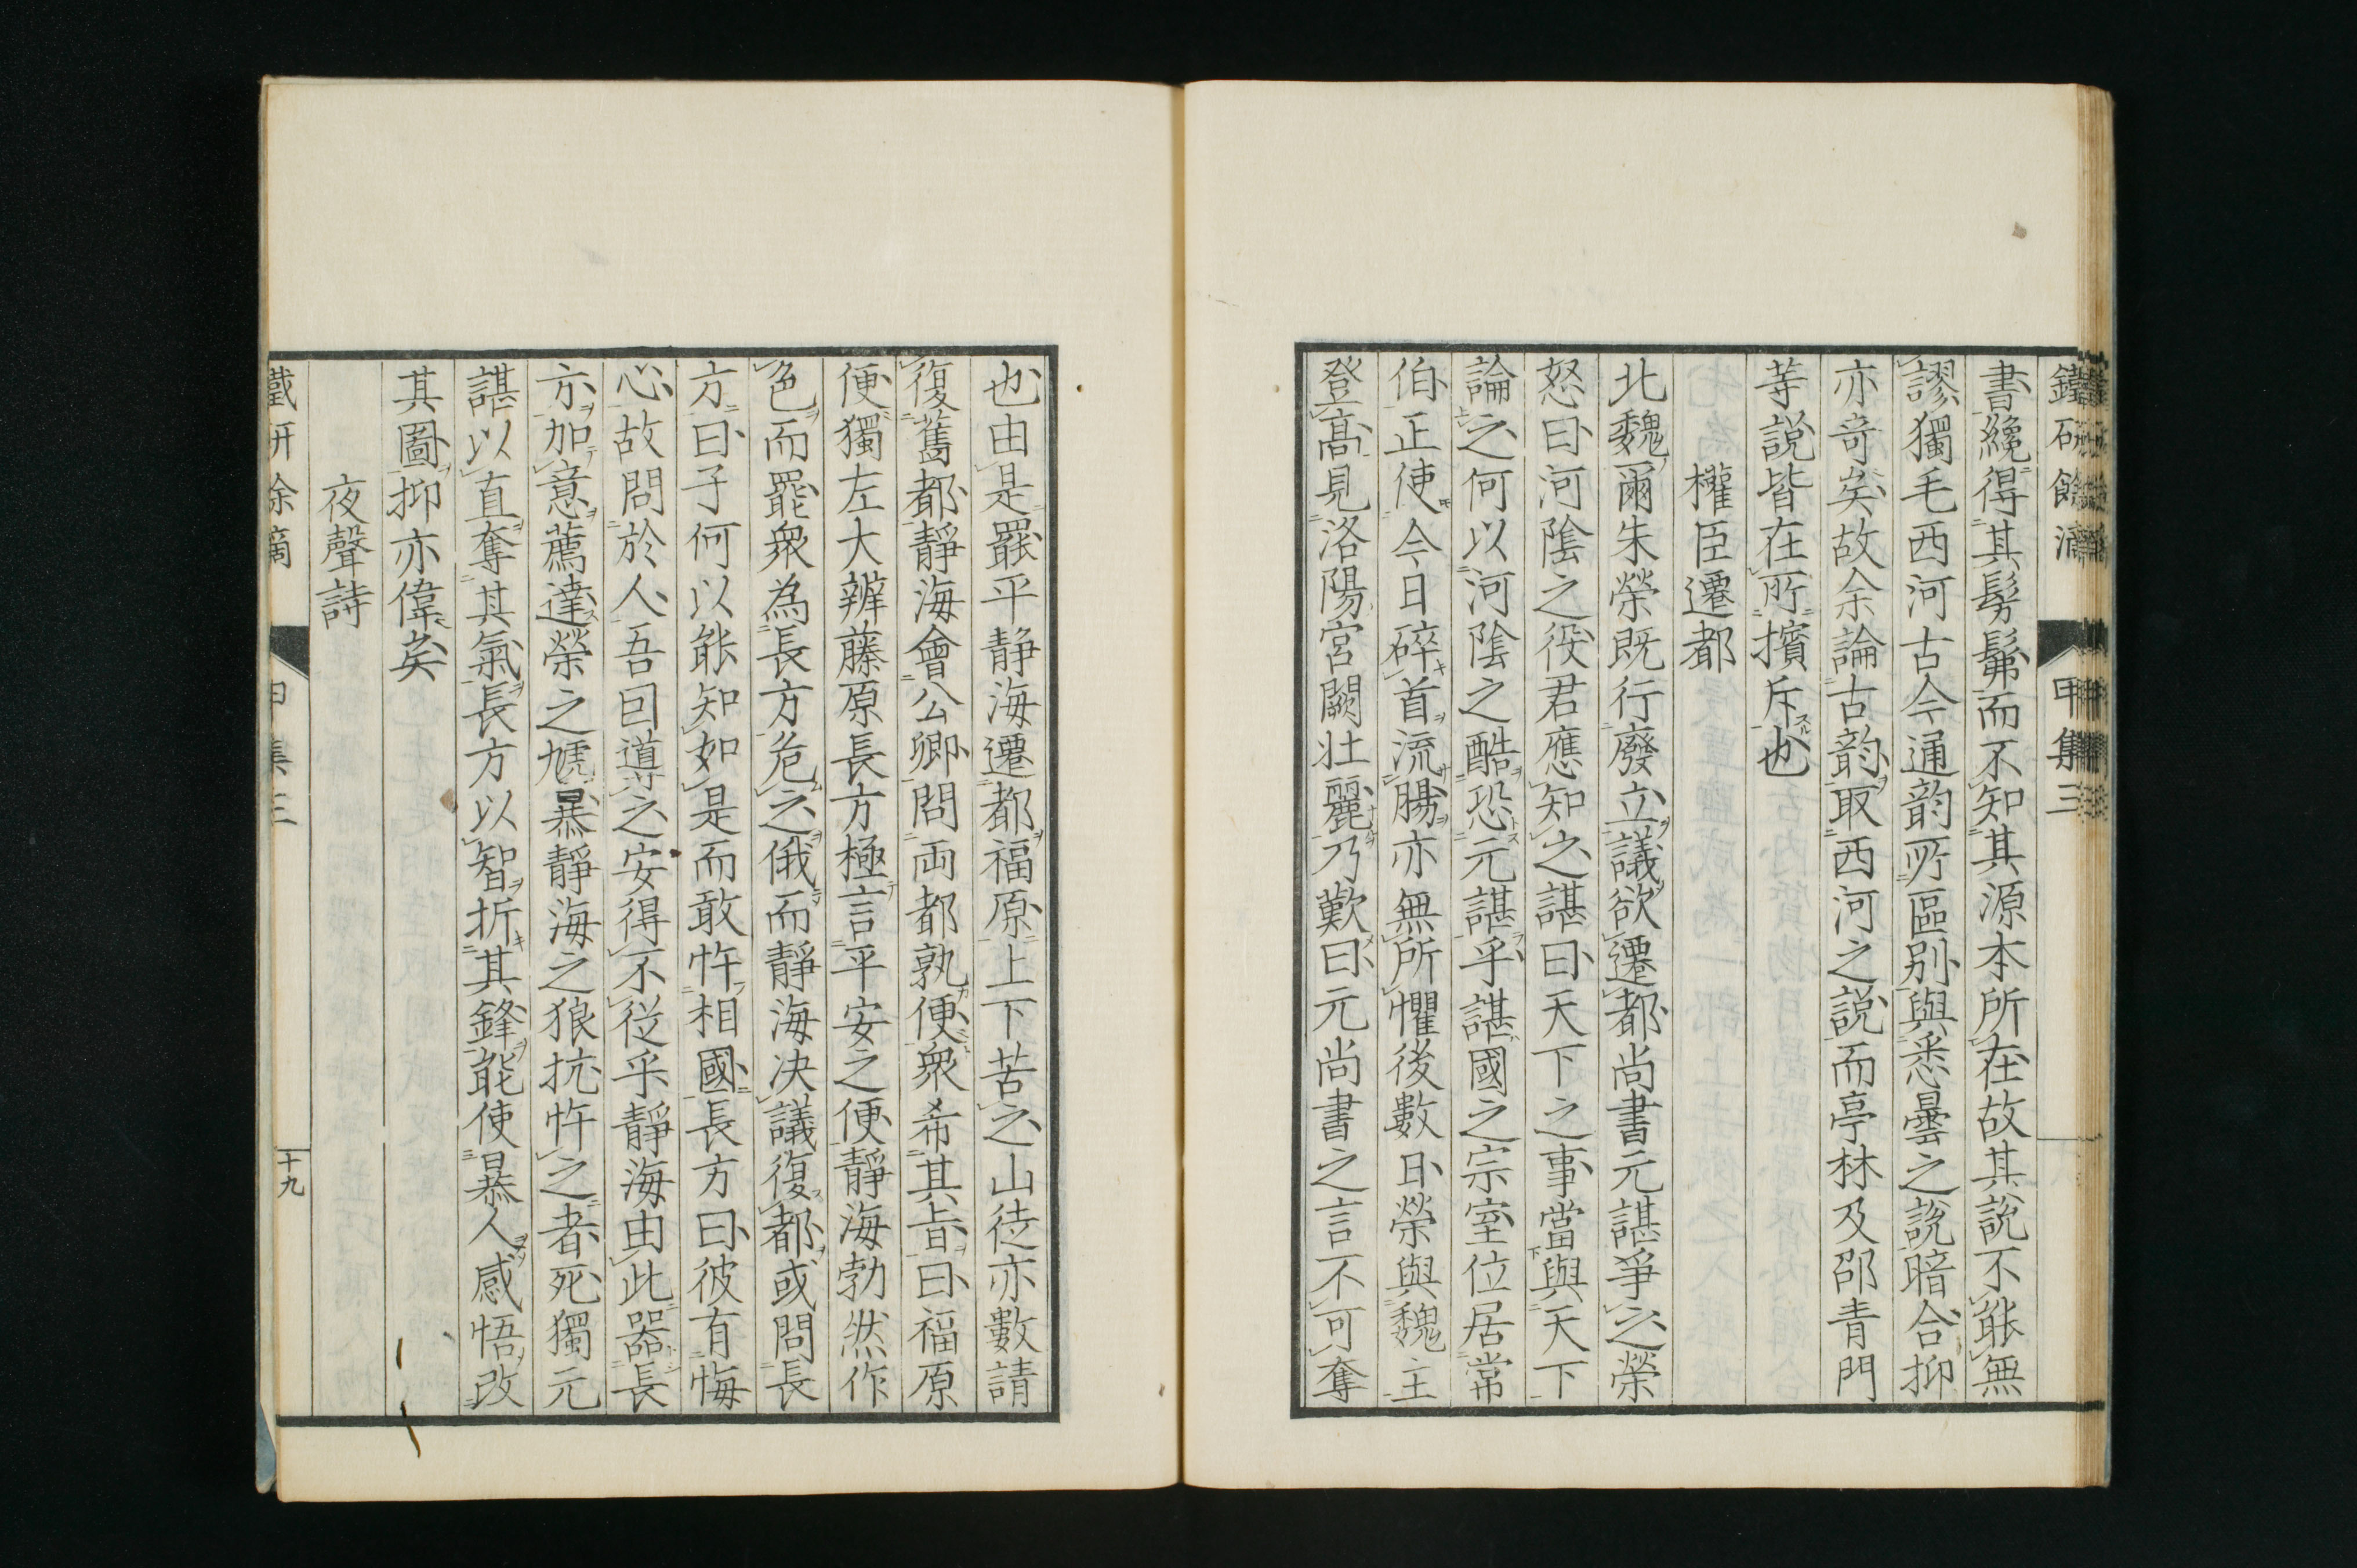 鐵研餘滴 甲集三
書纔得其髣髴而不知其源本所在故其說不能無
謬獨毛西河古今通韵所區別與悉曇之說暗合抑
亦奇矣故余論古韵取西河之說而亭林及邵青門
等説皆在所擯斥也
權臣遷都
北魏爾朱榮既行廢立議欲遷都尚書元諶爭之榮
怒曰河陰之役君應知之諶曰天下之事當與天下
論之何以河陰之酷恐元諶乎諶國之宗室位居常
伯正使今日碎首流腸亦無所懼後數日榮與魏主
登髙見洛陽宮闕壯麗乃歎曰元尚書之言不可奪
也由是罷平静海遷都福原上下苦之山徒亦數請
復舊都靜海會公卿問両都孰便衆希其旨曰福原
便獨左大辨藤原長方極言平安之便靜海勃然作
色而罷衆為長方危之俄而靜海决議復都或問長
方曰子何以能知如是而敢忤相國長方曰彼有悔
心故問於人吾囙導之安得不從乎靜海由此器長
方加意薦達榮之虓暴靜海之狼抗忤之者死獨元
諶以直奪其氣長方以智折其鋒能使暴人感悟改
其圖抑亦偉矣
夜聲詩
鐵研餘滴 甲集三 十九